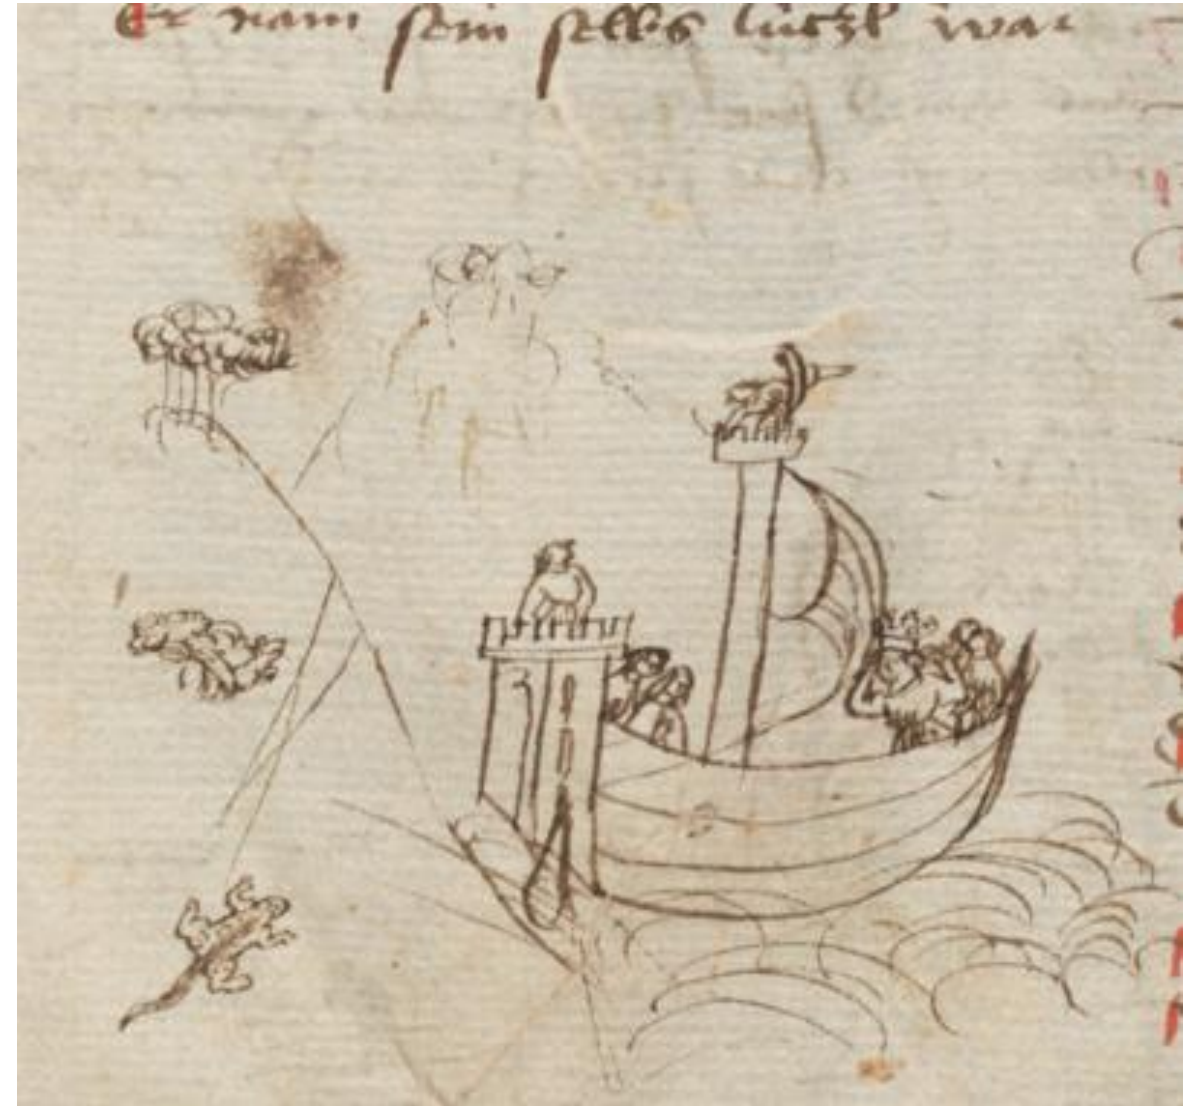 Er nam sein selbs lützl war